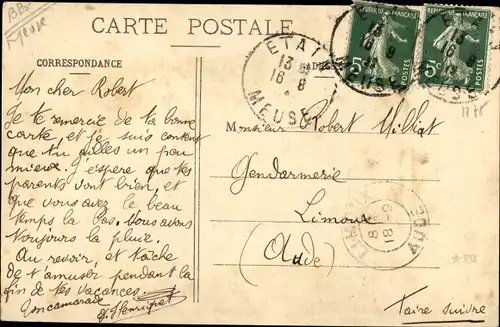 BB
Meuse
CARTE POSTALE
CORRESPONDANCE
Mon cher Robert
Je te remercie de ta bonne
carte, et je suis content
que tu ailles un peu
mieux. J'espere que tes
parents vont bien, et
que vous avez le beau
temps la bas. Nous avons
toujours la pluie.
Au revoir, et tâche
de t'amuser pendant la
fin de tes vacances.
Ton camarade
ETAIN
13
16 8
MEUSE
ETAIN
13
16 8
MEUSE
13
16 8
MEUSE
FRANÇAISE
5c
POSTES
REPUBLIQUE FRANÇAISE
5c
POSTES
Monsieur Robert
Gendarmerie
Limoux
(Aude)
LIMOUX
18 -9
AUDE
Faire suivre